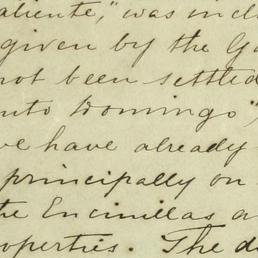 aliente," was incl
given by the Go
not been settled
nto Domingo",
ve have already
principally on
the Encinillas a
operties. The di